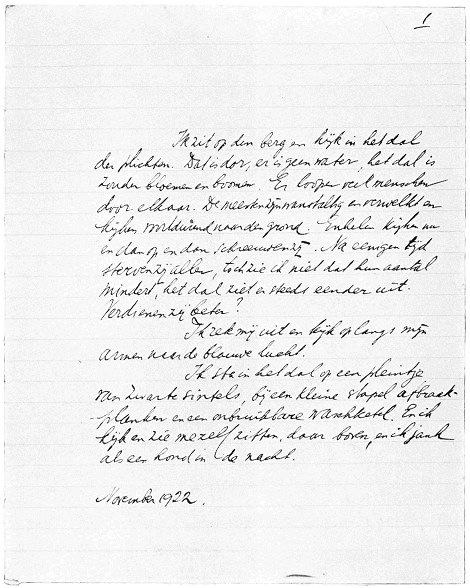 1
Ik zit op den berg en kijk in het dal
der plichten. Dat is dor, er is geen water, het dal is
zonder bloemen en boomen. Er loopen veel menschen
door elkaar. De meesten zijn wanstaltig en verwelkt en
kijken voortdurend naar den grond. Enkelen kijken nu
en dan op en dan schreeuwen zij. Na eenigen tijd
sterven zij allen, toch zie ik niet dat hun aantal
mindert, het dal ziet er steeds eender uit.
Verdienen zij beter?
Ik rek mij uit en kijk op langs mijn
armen naar de blauwe lucht.
Ik sta in het dal op een pleintje
van zwarte sintels, bij een kleine stapel afbraak-
planken en een onbruikbare waschketel. En ik
kijk en zie mezelf zitten, daar boven, en ik jank
als een hond in de nacht.
November 1922.